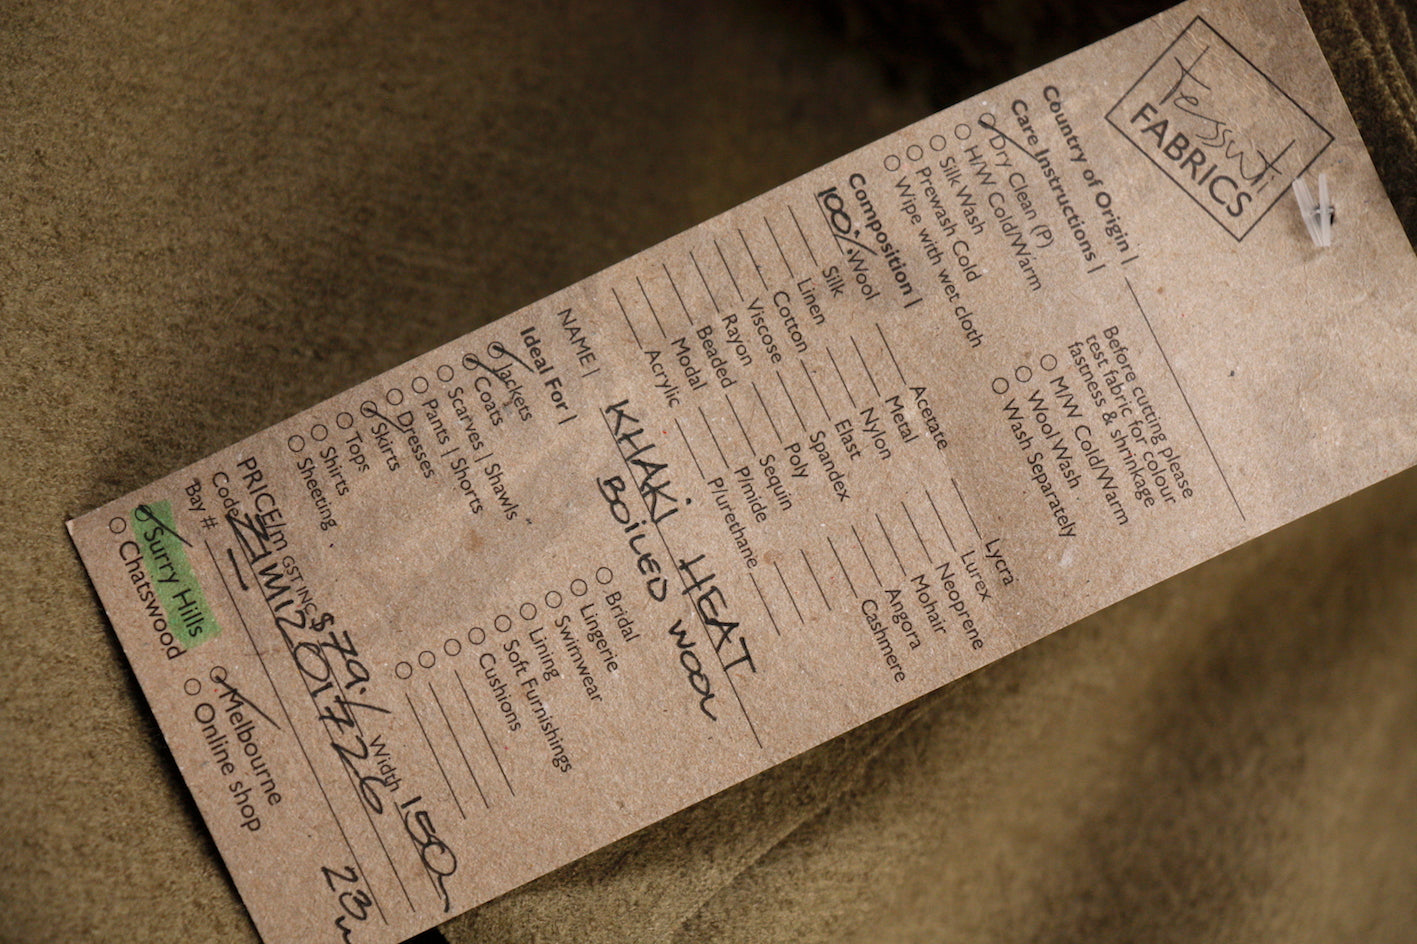 tessuti
FABRICS
Country of Origin |
Care Instructions |
Dry Clean (P)
H/W Cold/Warm
Silk Wash
Prewash Cold
Wipe with wet cloth
Before cutting please
test fabric for colour
fastness & shrinkage
M/W Cold/Warm
Wool Wash
Wash Separately
Composition |
100% Wool
Silk
Linen
Cotton
Viscose
Rayon
Beaded
Modal
Acrylic
Acetate
Metal
Nylon
Elast
Spandex
Poly
Sequin
P/mide
P/urethane
Lycra
Lurex
Neoprene
Mohair
Angora
Cashmere
NAME | KHAKI HEAT
BOILED WOOL
Ideal For |
Jackets
Coats
Scarves | Shawls
Pants | Shorts
Dresses
Skirts
Tops
Shirts
Sheeting
Bridal
Lingerie
Swimwear
Lining
Soft Furnishings
Cushions
PRICE/m GST INC $79./ Width 150
Code
Bay #
23
Surry Hills
Chatswood
Melbourne
Online shop